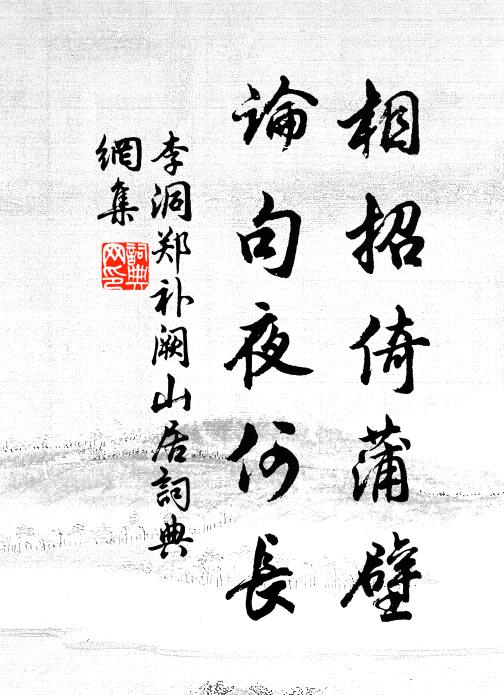 相招倚蒲壁
論句夜何長
李洞郑补阙山居詞典
網集
詞典网印